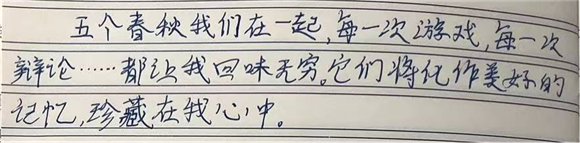 五个春秋我们在一起,每一次游戏,每一次
辩论……都让我回味无穷。它们将化作美好的
记忆,珍藏在我心中。